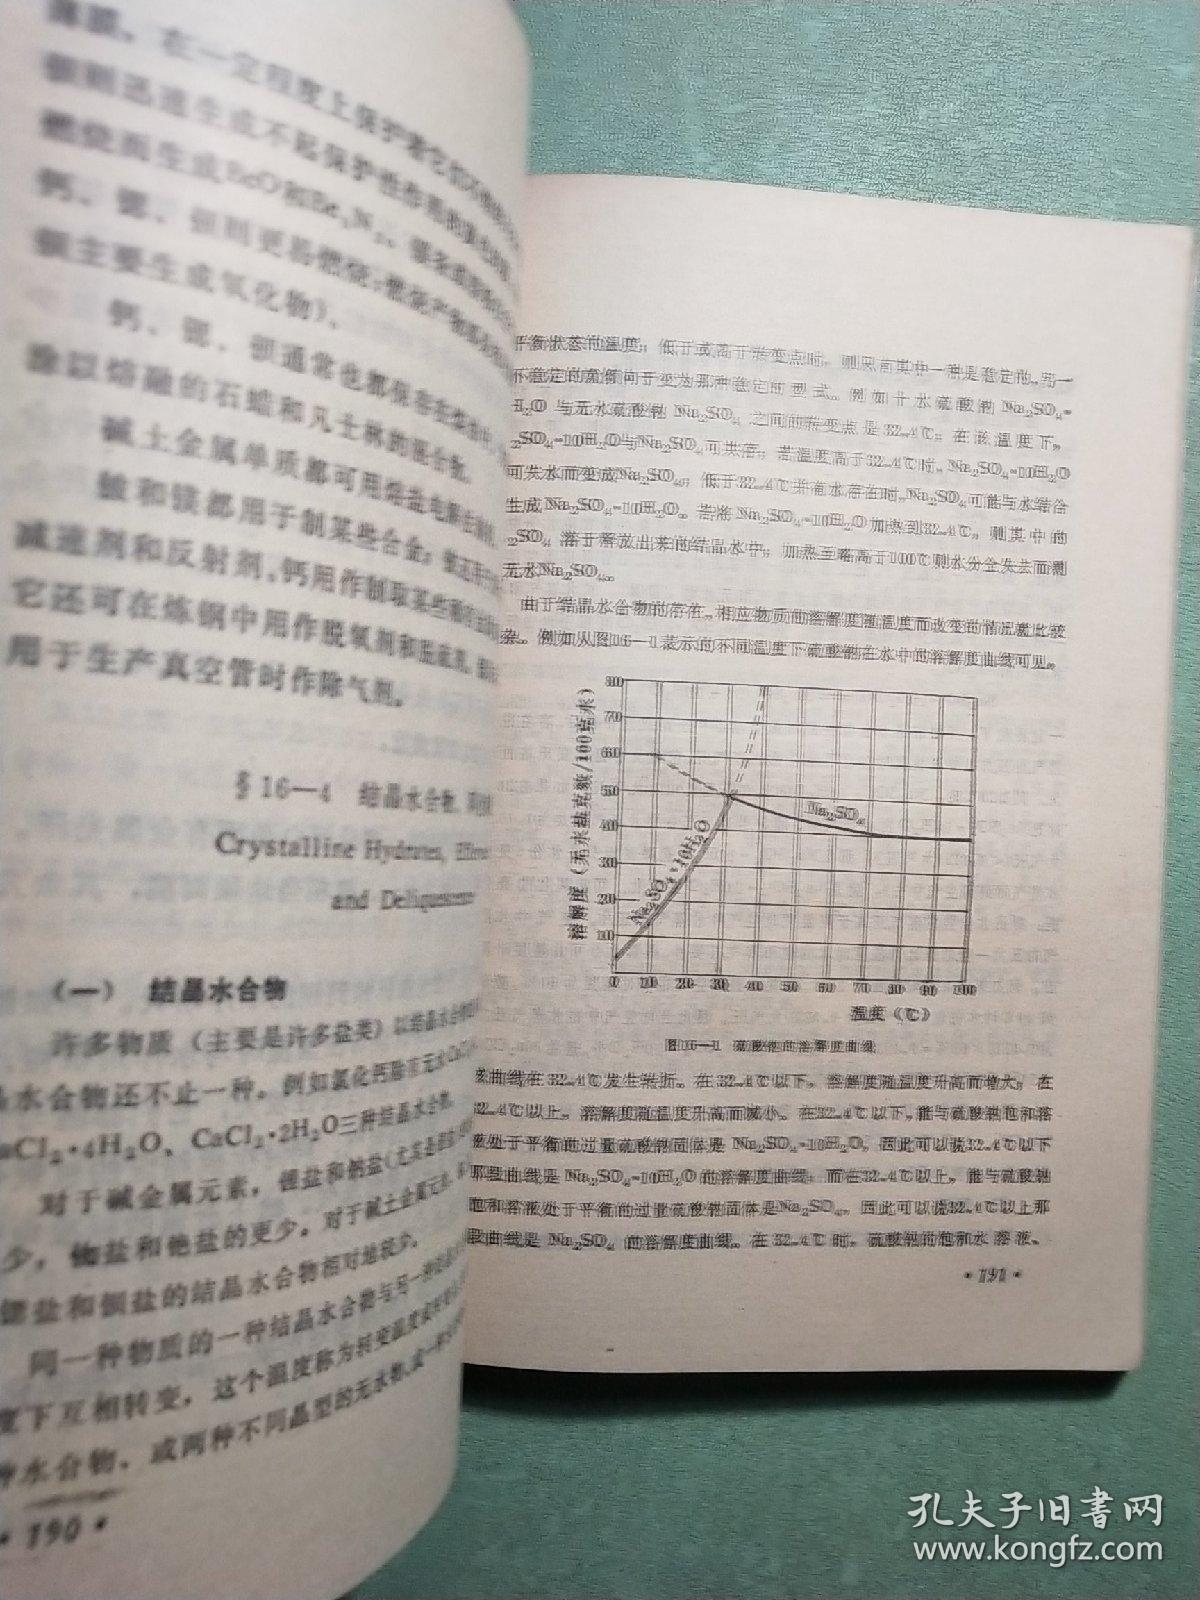 薄膜，在一定程度上保护着它们不
钡则迅速生成不起保护性作用的
燃烧而生成BeO和Be₃N₂。镁条
钙、锶、钡则更易燃烧；燃烧产物
钡主要生成氧化物）。
钙、锶、钡通常也都保存在煤油中，
涂以熔融的石蜡和凡士林的混合物。
碱土金属单质都可用熔盐电解法制
铍和镁都用于制某些合金；铍还
减速剂和反射剂、钙用作制取某些稀有
它还可在炼钢中用作脱氧剂和脱硫剂。
用于生产真空管时作除气剂。
§16—4 结晶水合物、
Crystalline Hydrates,
and Deliquescence
（一） 结晶水合物
许多物质（主要是许多盐类）以结晶水合物
水合物还不止一种。例如氯化钙除有无水
CaCl₂·4H₂O、CaCl₂·2H₂O三种结晶水合物。
对于碱金属元素，锂盐和钠盐（尤其是
少，铷盐和铯盐的更少。对于碱土金属元素，
锶盐和钡盐的结晶水合物相对地较少。
同一种物质的一种结晶水合物与另一种
度下互相转变，这个温度称为转变温度或
种水合物，或两种不同晶型的无水物，或一种
• 190 •
平衡状态的温度；低于或高于转变点时，则只有其中一种是稳定的，另一
不稳定的就倾向于变为那种稳定的型式。例如十水硫酸钠 Na₂SO₄·
H₂O 与无水硫酸钠 Na₂SO₄ 之间的转变点是 32.4℃；在该温度下，
₂SO₄·10H₂O与Na₂SO₄可共存；若温度高于32.4℃时，Na₂SO₄·10H₂O
可失水而变成Na₂SO₄；低于32.4℃并有水存在时，Na₂SO₄可能与水结合
生成Na₂SO₄·10H₂O。若将Na₂SO₄·10H₂O加热到32.4℃，则其中的
₂SO₄ 溶于释放出来的结晶水中；加热至略高于100℃则水分全失去而得
无水Na₂SO₄。
由于结晶水合物的存在，相应物质的溶解度随温度而改变的情况就比较
杂。例如从图16—1表示的不同温度下硫酸钠在水中的溶解度曲线可见，
溶解度（无水盐克数/100克水）
800
700
600
500
400
300
200
100
Na₂SO₄·10H₂O
Na₂SO₄
0 10 20 30 40 50 60 70 80 90 100
温度（℃）
图16—1 硫酸钠的溶解度曲线
该曲线在32.4℃发生转折。在32.4℃以下，溶解度随温度升高而增大；在
32.4℃以上，溶解度随温度升高而减小。在32.4℃以下，能与硫酸钠饱和溶
液处于平衡的过量硫酸钠固体是 Na₂SO₄·10H₂O，因此可以说32.4℃以下
那段曲线是 Na₂SO₄·10H₂O 的溶解度曲线；而在32.4℃以上，能与硫酸钠
饱和溶液处于平衡的过量硫酸钠固体是Na₂SO₄，因此可以说32.4℃以上那
段曲线是 Na₂SO₄ 的溶解度曲线。在 32.4℃ 时，硫酸钠的饱和水溶液、
• 191 •
孔夫子旧书网
www.kongfz.com